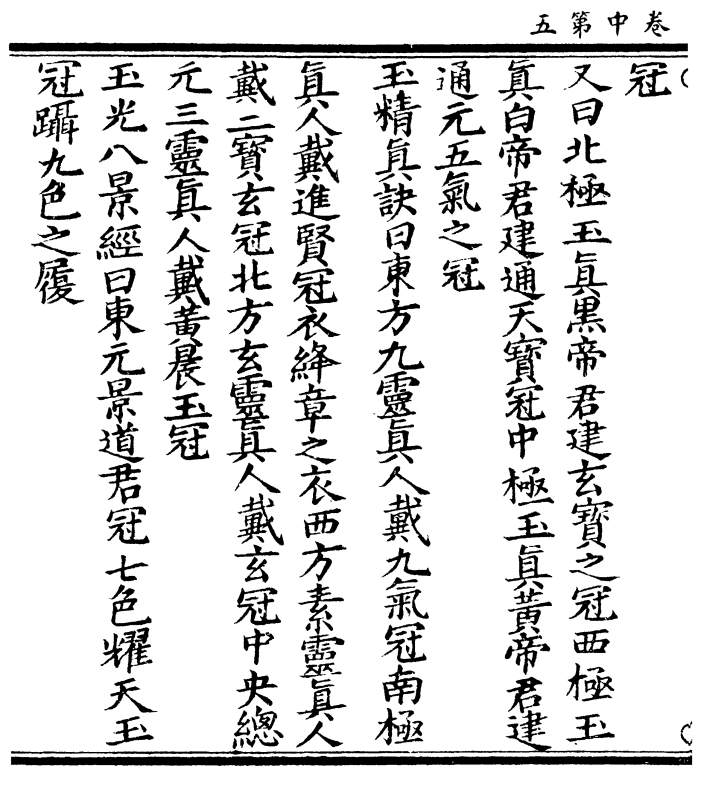 卷中第五
冠
又曰北極玉眞黑帝君建玄寶之冠西極玉
眞白帝君建通天寶冠中極玉眞黃帝君建
通元五氣之冠
玉精眞訣曰東方九靈眞人戴九氣冠南極
眞人戴進賢冠衣絳章之衣西方素靈眞人
戴二寶玄冠北方玄靈眞人戴玄冠中央總
元三靈眞人戴黃晨玉冠
玉光八景經曰東元景道君冠七色耀天玉
冠躡九色之履